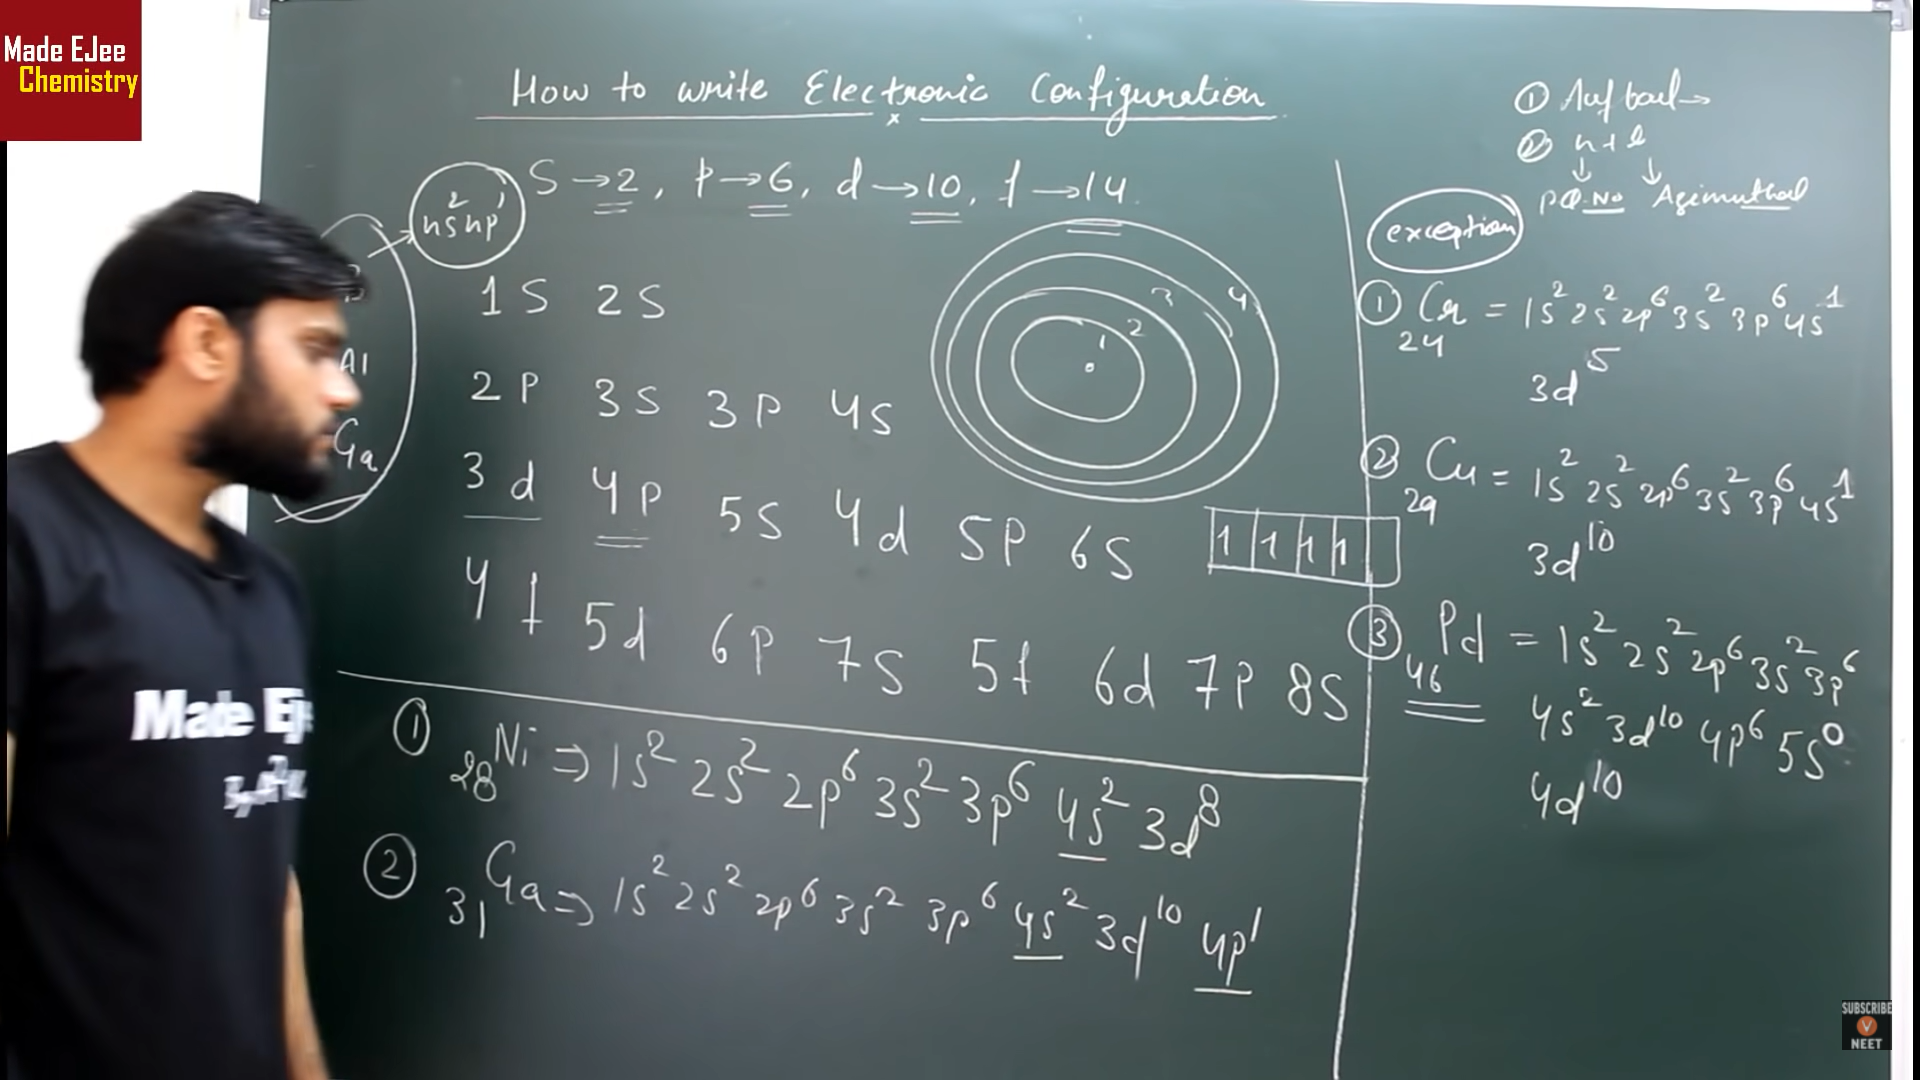 Made EJee
Chemistry
How to write Electronic Configuration
S → 2, p → 6, d → 10, f → 14.
ns² np¹
Al
Ga
1S 2S
2P 3S 3P 4S
3d 4P 5S 4d 5P 6S
4f 5d 6P 7S 5f 6d 7P 8S
1 2 3 4
1 1 1 1
① ₂₈Ni ⇒ 1s² 2s² 2p⁶ 3s² 3p⁶ 4s² 3d⁸
② ₃₁Ga ⇒ 1s² 2s² 2p⁶ 3s² 3p⁶ 4s² 3d¹⁰ 4p¹
① Aufbau →
② n + l
↓ ↓
PQ.No Azimuthal
exception
① ₂₄Cr = 1s² 2s² 2p⁶ 3s² 3p⁶ 4s¹
3d⁵
② ₂₉Cu = 1s² 2s² 2p⁶ 3s² 3p⁶ 4s¹
3d¹⁰
③ ₄₆Pd = 1s² 2s² 2p⁶ 3s² 3p⁶
4s² 3d¹⁰ 4p⁶ 5s⁰
4d¹⁰
Made Ej
SUBSCRIBE
V
NEET